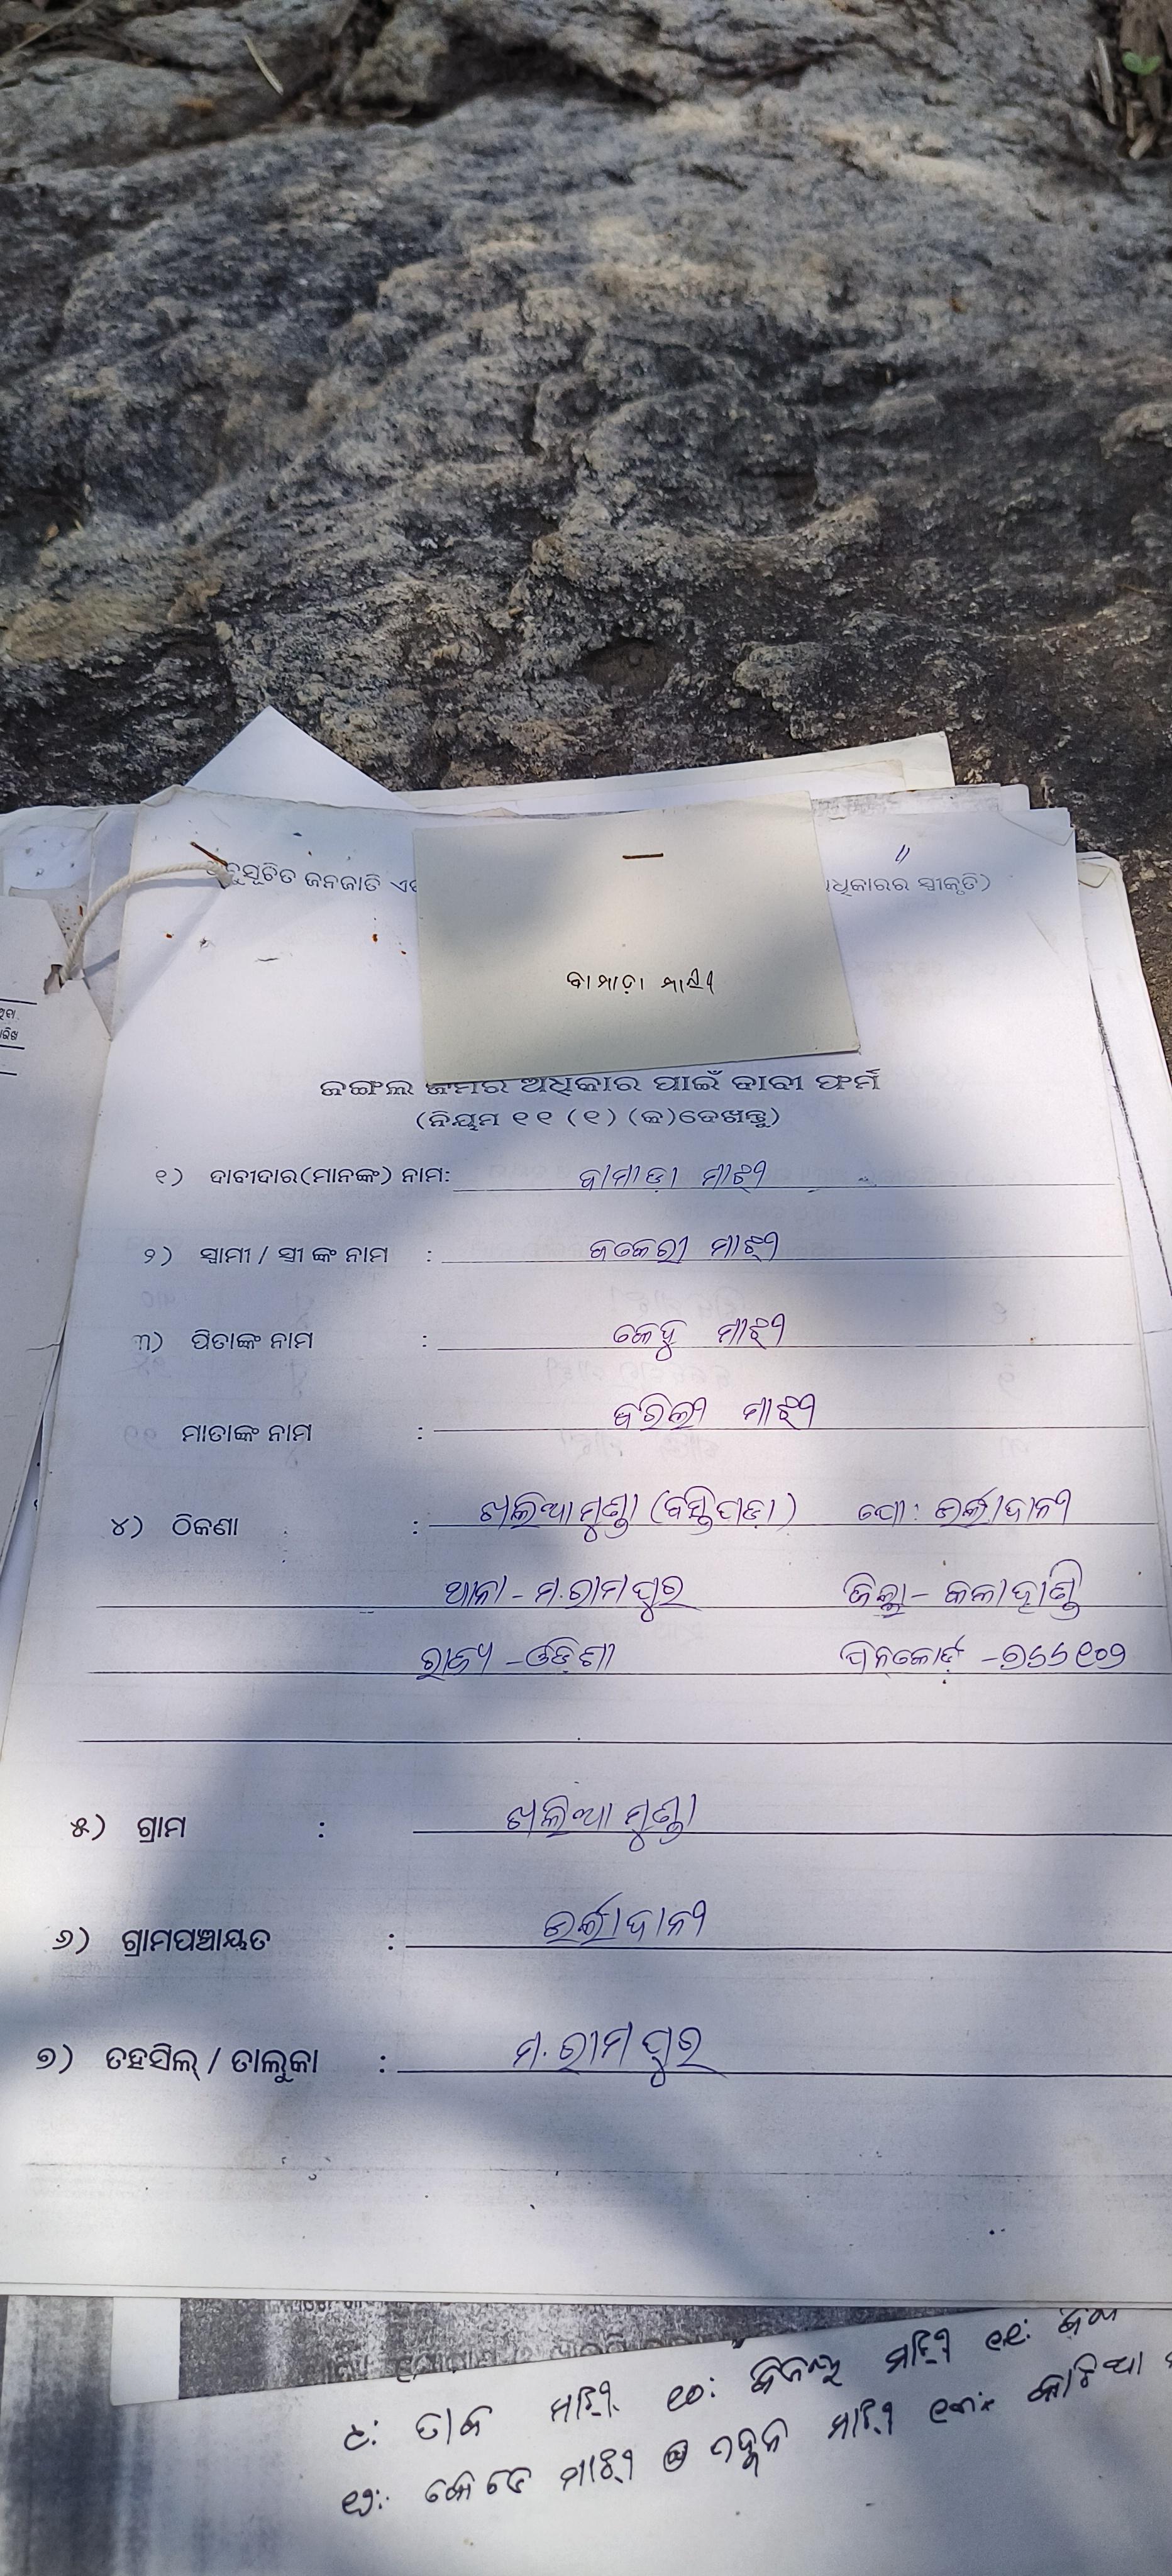 ଅନୁସୂଚିତ ଜନଜାତି ଅଧିକାରର ସ୍ୱୀକୃତି)
ବାମାଡ଼ା ମାଝୀ
ଜଙ୍ଗଲ ଜମିର ଅଧିକାର ପାଇଁ ଦାବୀ ଫର୍ମ
(ନିୟମ ୧୧ (୧) (କ)ଦେଖନ୍ତୁ)
୧) ଦାବୀଦାର(ମାନଙ୍କ) ନାମ: ବାମାଡ଼ା ମାଝୀ
୨) ସ୍ୱାମୀ / ସ୍ତ୍ରୀ ଙ୍କ ନାମ : ମାଝୀ
୩) ପିତାଙ୍କ ନାମ : କେହୁ ମାଝୀ
ମାତାଙ୍କ ନାମ : ମାଝୀ
୪) ଠିକଣା : ଖଲିଆମୁଣ୍ଡା (ବସ୍ତିପଡ଼ା) ପୋ: ଉର୍ଲାଦାନୀ
ଥାନା - ମ.ରାମପୁର ଜିଲ୍ଲା - କଳାହାଣ୍ଡି
ରାଜ୍ୟ - ଓଡ଼ିଶା ପିନକୋଡ଼ - ୭୬୬୧୦୨
୫) ଗ୍ରାମ : ଖଲିଆମୁଣ୍ଡା
୬) ଗ୍ରାମପଞ୍ଚାୟତ : ଉର୍ଲାଦାନୀ
୭) ତହସିଲ୍ / ତାଲୁକା : ମ.ରାମପୁର
ମାଝି ୧୦: ମାଝି ୧୧:
୧୨: ମାଝି ମାଝି